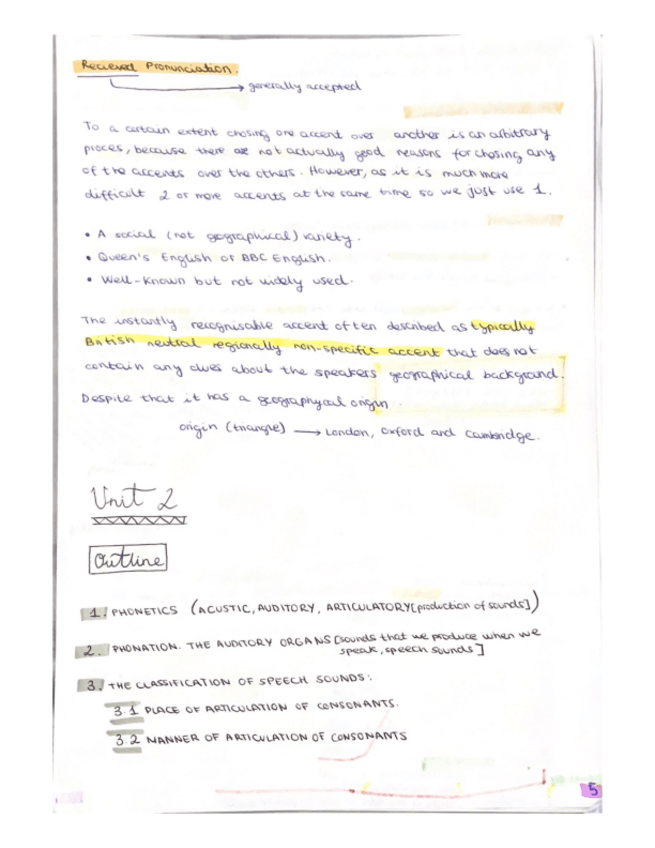 Recieved Pronunciation.
generally accepted
To a certain extent chosing one accent over another is an arbitrary
proces, because there are not actually good reasons for chosing any
of the accents over the others. However, as it is much more
difficult 2 or more accents at the same time so we just use 1.
• A social (not geographical) variety.
• Queen's English or BBC English.
• Well-known but not widely used.
The instantly recognisable accent often described as typically
British neutral regionally non-specific accent that does not
contain any clues about the speakers geographical background.
Despite that it has a geographycal origin
origin (triangle) → London, Oxford and Cambridge.
Unit 2
Outline
1. PHONETICS (ACUSTIC, AUDITORY, ARTICULATORY [production of sounds])
2. PHONATION. THE AUDITORY ORGANS [sounds that we produce when we
speak, speech sounds]
3. THE CLASSIFICATION OF SPEECH SOUNDS:
3.1 PLACE OF ARTICULATION OF CONSONANTS.
3.2 MANNER OF ARTICULATION OF CONSONANTS
5